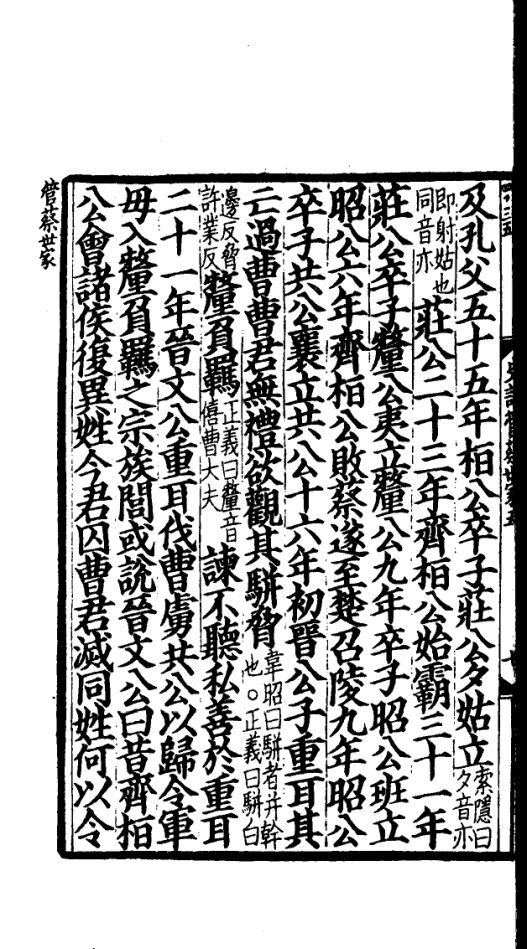 及孔父五十五年桓公卒子莊公夕姑立索隱曰夕音亦
即射姑也同音亦莊公二十三年齊桓公始霸三十一年
莊公卒子釐公夷立釐公九年卒子昭公班立
昭公六年齊桓公敗蔡遂至楚召陵九年昭公
卒子共公襄立共公十六年初晉公子重耳其
亡過曹曹君無禮欲觀其駢脅韋昭曰駢者并幹也○正義曰駢白
邊反脅許業反釐負羈正義曰釐音僖曹大夫諫不聽私善於重耳
二十一年晉文公重耳伐曹虜共公以歸令軍
毋入釐負羈之宗族閭或說晉文公曰昔齊桓
公會諸侯復異姓今君囚曹君滅同姓何以令
管蔡世家